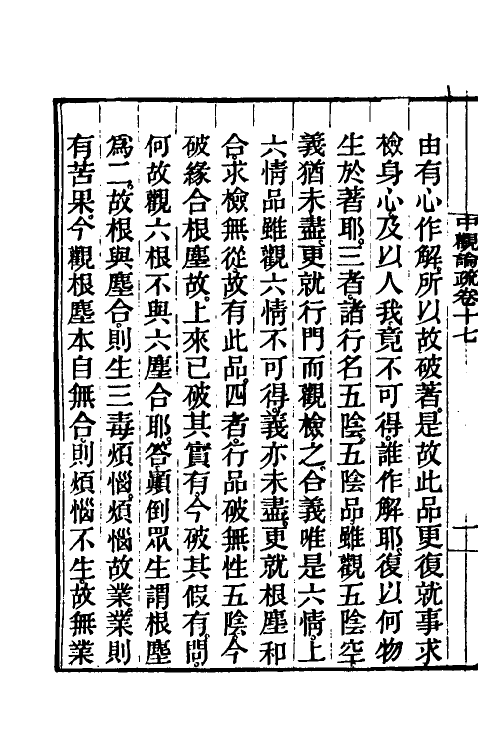 中觀論疏卷十七
十一
由有心作解。所以故破著。是故此品更復就事求
檢身心。及以人我。竟不可得。誰作解耶。復以何物
生於著耶。三者。諸行名五陰。五陰品雖觀五陰空。
義猶未盡。更就行門而觀檢之。合義唯是六情。上
六情品雖觀六情不可得。義亦未盡。更就根塵和
合。求檢無從。故有此品。四者。行品破無性五陰。今
破緣合根塵故。上來已破其實有。今破其假有。問。
何故觀六根不與六塵合耶。答。顛倒眾生謂根塵
為二。故根與塵合。則生三毒煩惱。煩惱故業。業則
有苦果。今觀根塵本自無合。則煩惱不生。故無業